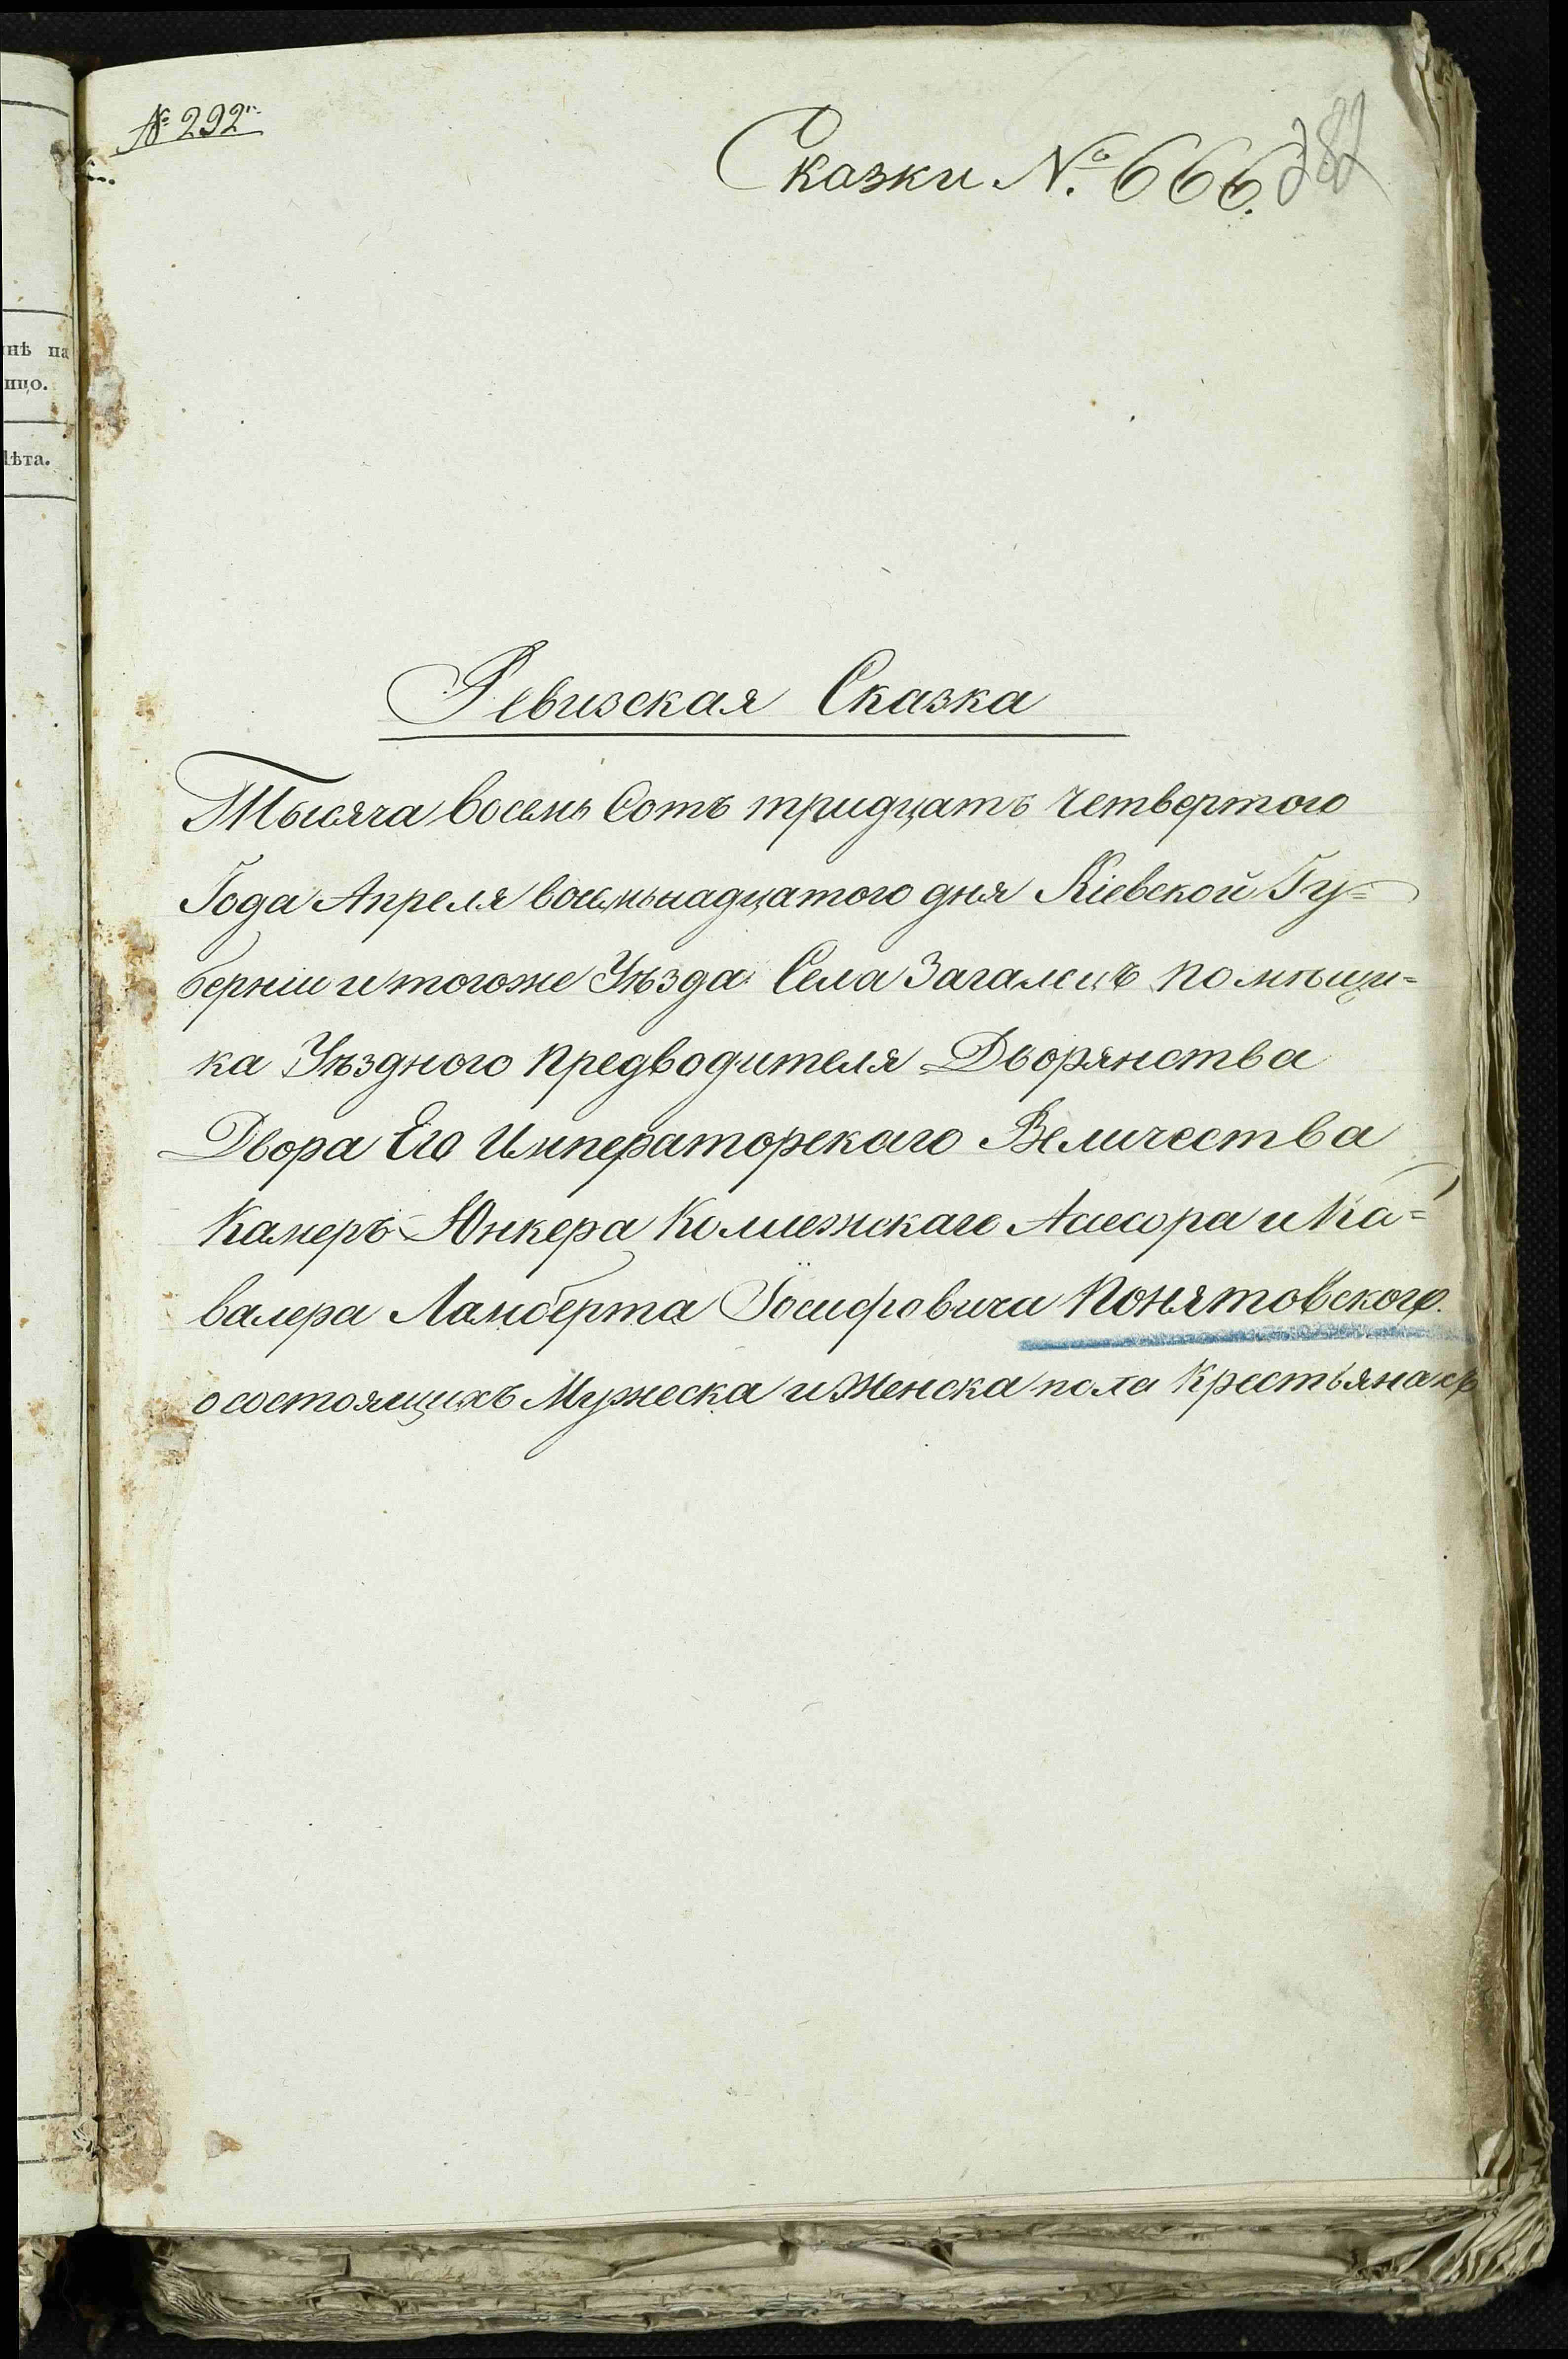 № 292.
Сказки №. 666.
282
нѣ на
ицо.
лѣта.
Ревизская Сказка
Тысяча восемь Сотъ тридцать Четвертого
Года Апреля восьмьнадцатого дня Кіевской Гу=
берніи и тогоже Уѣзда Села Загалецъ помѣщи=
ка Уѣздного предводителя Дворянства
Двора Его Императорскаго Величества
Камеръ-Юнкера Коллежскаго Асессора и Ка=
валера Ламберта Іосифовича Понятовского
о состоящихъ Мужеска и Женска пола крестьянахъ